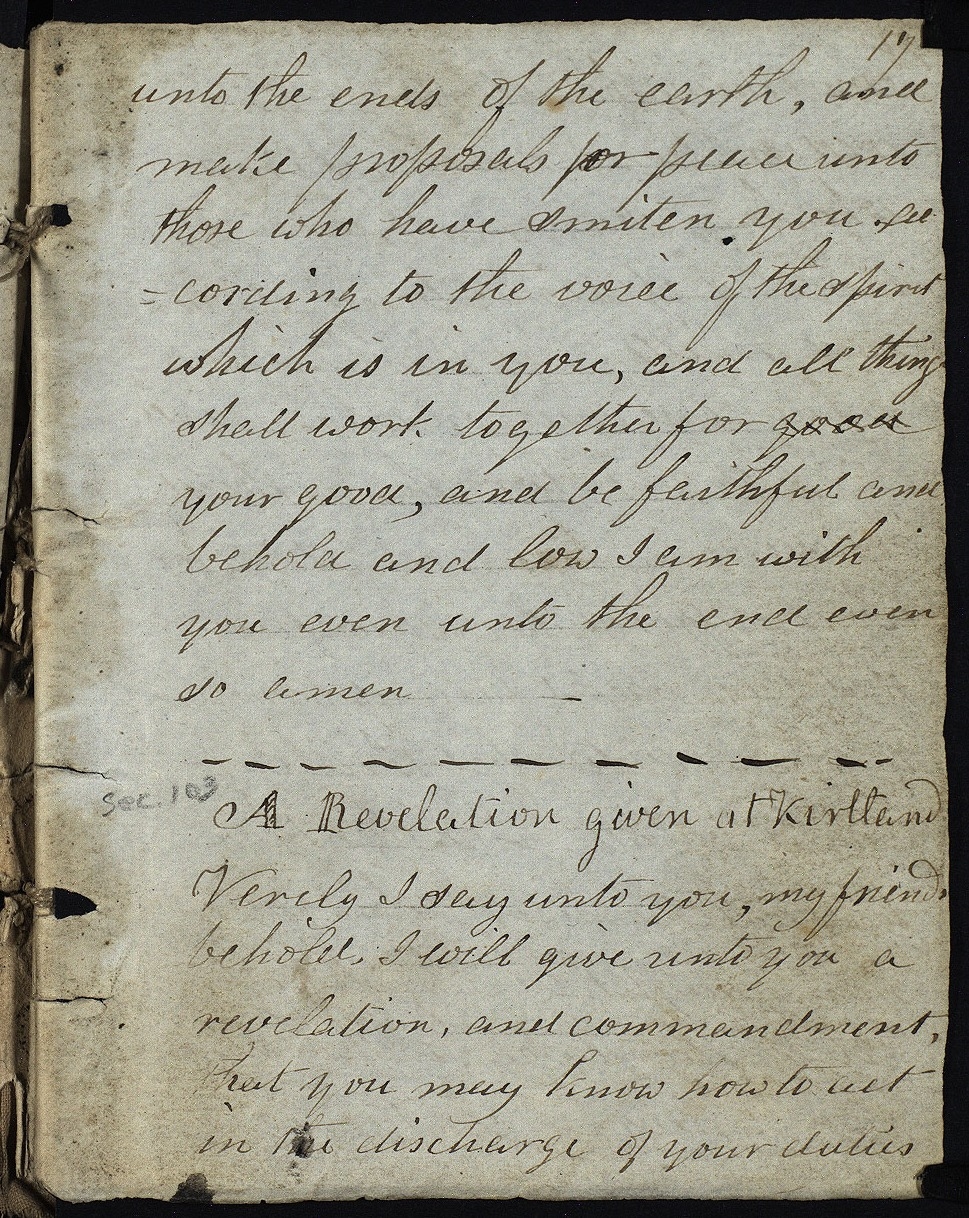 17
unto the ends of the earth, and
make proposals for peace unto
those who have smiten you ac
=cording to the voice of the spirit
which is in you, and all things
shall work together for good
your good, and be faithful and
behold and low I am with
you even unto the end even
so amen —
Sec. 103
A Revelation given at Kirtland
Verily I say unto you, my friends
behold, I will give unto you a
revelation, and commandment,
that you may know how to act
in the discharge of your duties